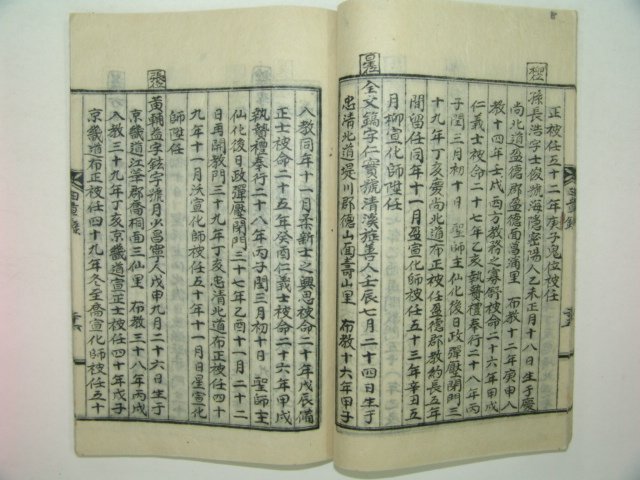 正被任五十二年庚子鬼位被任
孫長浩字士俊號海隱密陽人乙未正月十八日生于慶
尚北道盈德郡盈德面菖蒲里 布教十二年庚申入
教十四年壬戌西方教務之寡尉被任二十六年甲戌
仁義士被命二十七年乙亥執贄禮奉行二十八年丙
子閏三月初十日 聖師主仙化後日政彈壓閉門三
十九年丁亥慶尚北道布正被任盈德郡教約長五年
間留任同年十一月盈宣化師被任五十三年辛丑五
月柳宣化師陞任
全文鎬字仁實號清漢旌善人壬辰七月二十四日生于
忠清北道堤川郡德山面壽山里 布教十六年甲子
入教同年十一月柔新士之興思被命二十年戊辰備
正士被命二十五年癸酉仁義士被命二十六年甲戌
執贄禮奉行二十八年丙子閏三月初十日 聖師主
仙化後日政彈壓閉門三十七年乙酉十一月二十二
日再開教門三十九年丁亥忠清北道布正被任四十
九年十一月沃宣化師被任五十年十一月日星宣化
師陞任
黃輔益字鉉宇號月山昌寧人戊申九月二十六日生于
京畿道江華郡喬桐面三仙里 布教三十八年丙戌
入教三十九年丁亥京畿道宣正士被任四十年戊子
京畿道布正被任四十九年冬至喬宣化師被任五十